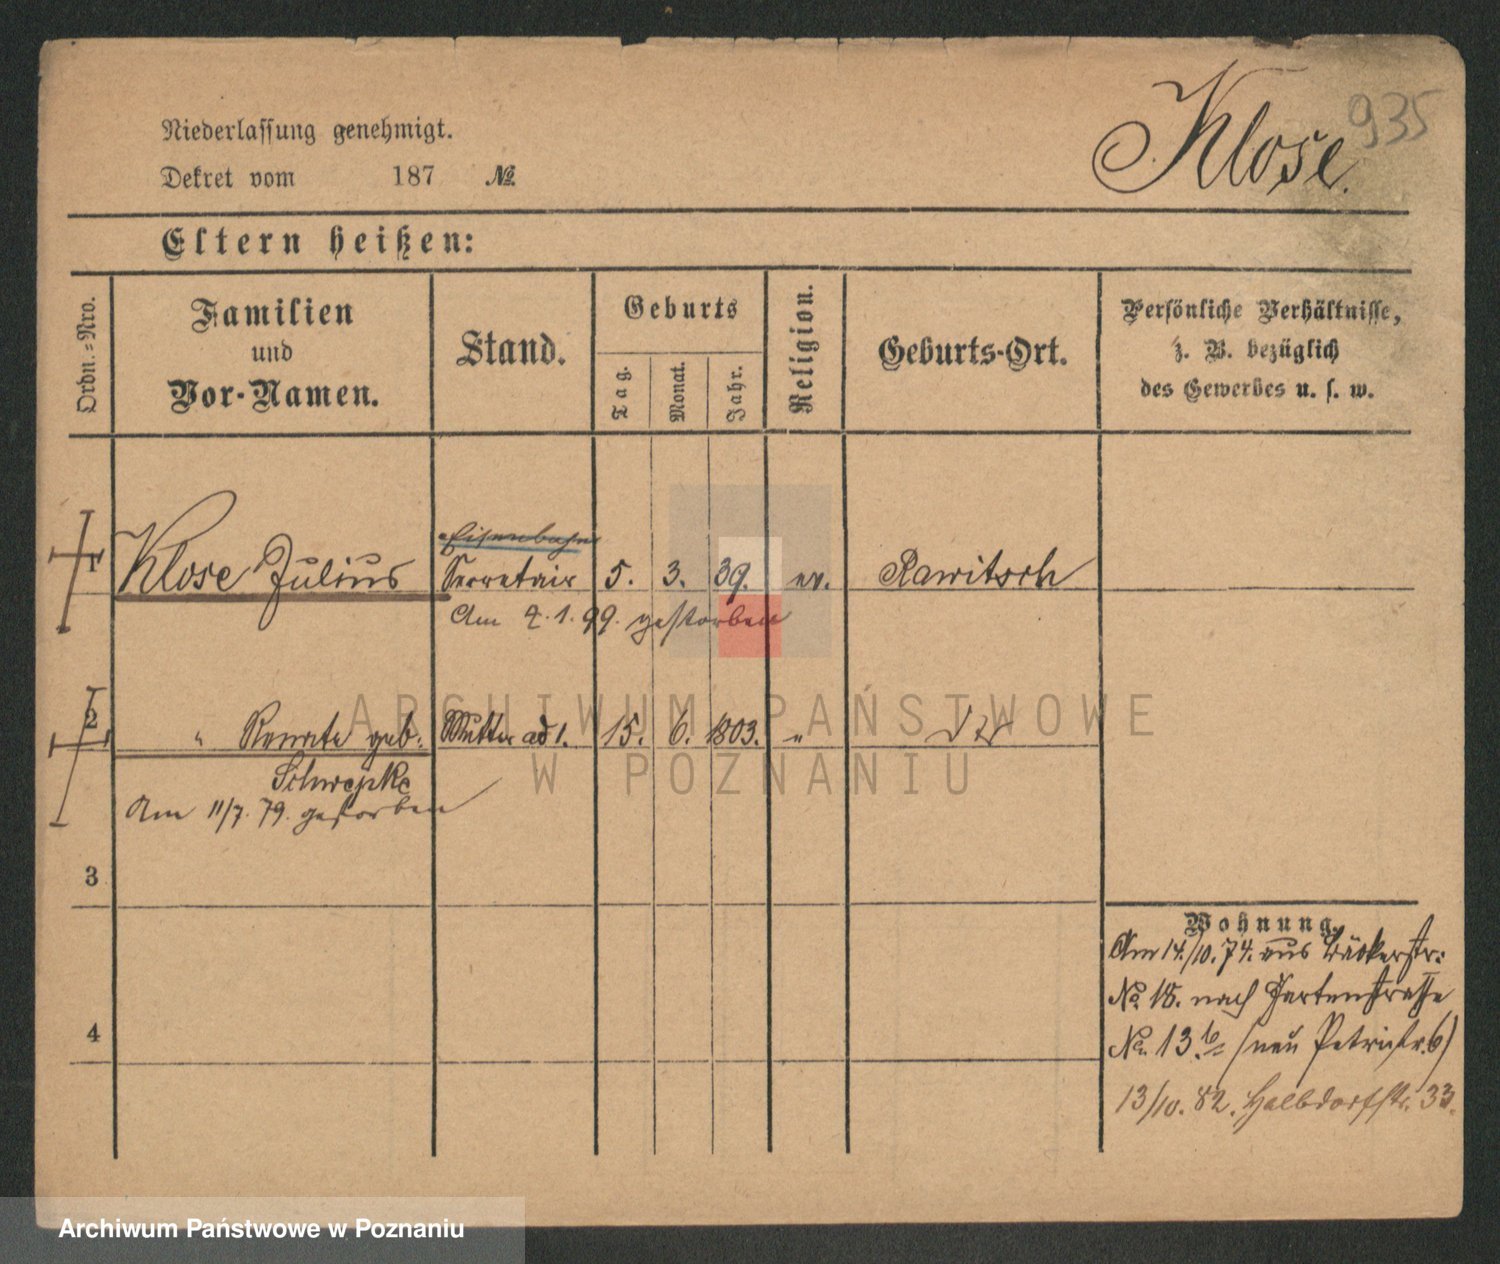 Klose.
935
Niederlassung genehmigt.
Dekret vom 187 №
Eltern heißen:
Ordn.-Nro.
Familien und Vor-Namen.
Stand.
Geburts
Tag.
Monat.
Jahr.
Religion.
Geburts-Ort.
Persönliche Verhältnisse,
z. B. bezüglich
des Gewerbes u. s. w.
Eisenbahn
1 Klose Julius Secretair 5. 3. 39. ev. Rawitsch
Am 2.1.99. gestorben
2 " Renate geb. Mutter ad 1. 15. 6. 1803. "
Schwepke
Am 11/7. 79. gestorben
3
4
Wohnung.
Am 14./10. 74. aus Bäckerstr.
No. 18. nach Gartenstrasse
No. 13.b (neu Petristr. 6)
13/10. 82. Halbdorfstr. 33.
ARCHIWUM PAŃSTWOWE
W POZNANIU
Archiwum Państwowe w Poznaniu